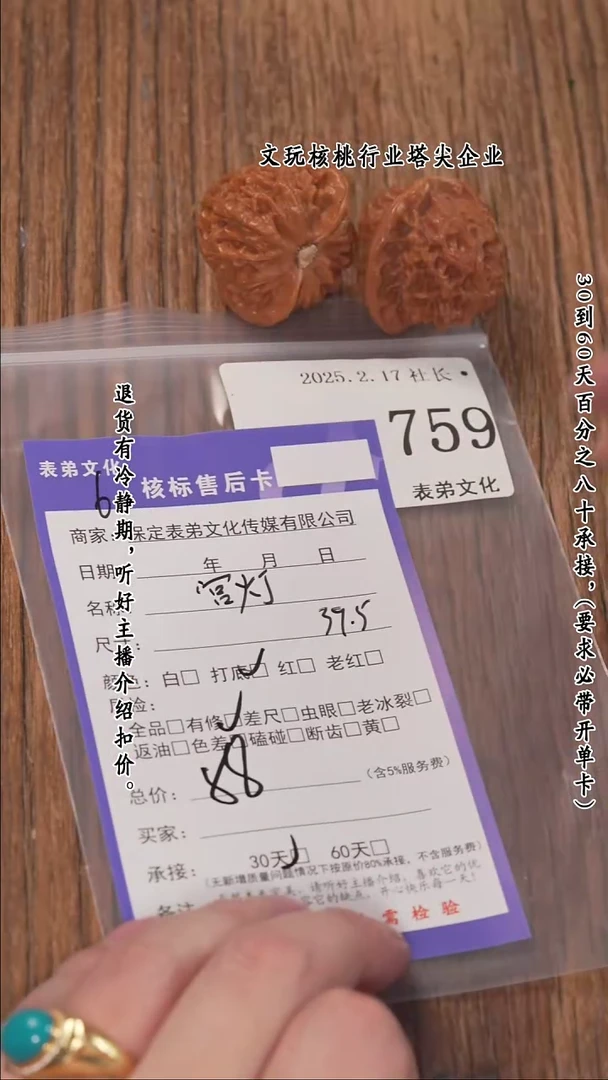 文玩核桃行业塔尖企业
30到60天百分之八十承接，(要求必带开单卡)
退货有冷静期，听好主播介绍扣价。
2025.2.17 社长
759
表弟文化
表弟文化
核标售后卡
商家：保定表弟文化传媒有限公司
日期 年 月 日
名称 宫灯
尺寸： 39.5
颜色：白□ 打底☑ 红□ 老红□
全品□有修☑差尺□虫眼□老冰裂□
返油□色差□磕碰□断齿□黄□
总价： 88 (含5%服务费)
买家：
承接： 30天☑ 60天□
(无新增质量问题情况下按原价80%承接，不含服务费)
备注 请听好主播介绍，喜欢它的优
容它的缺点，开心快乐每一天！
需检验